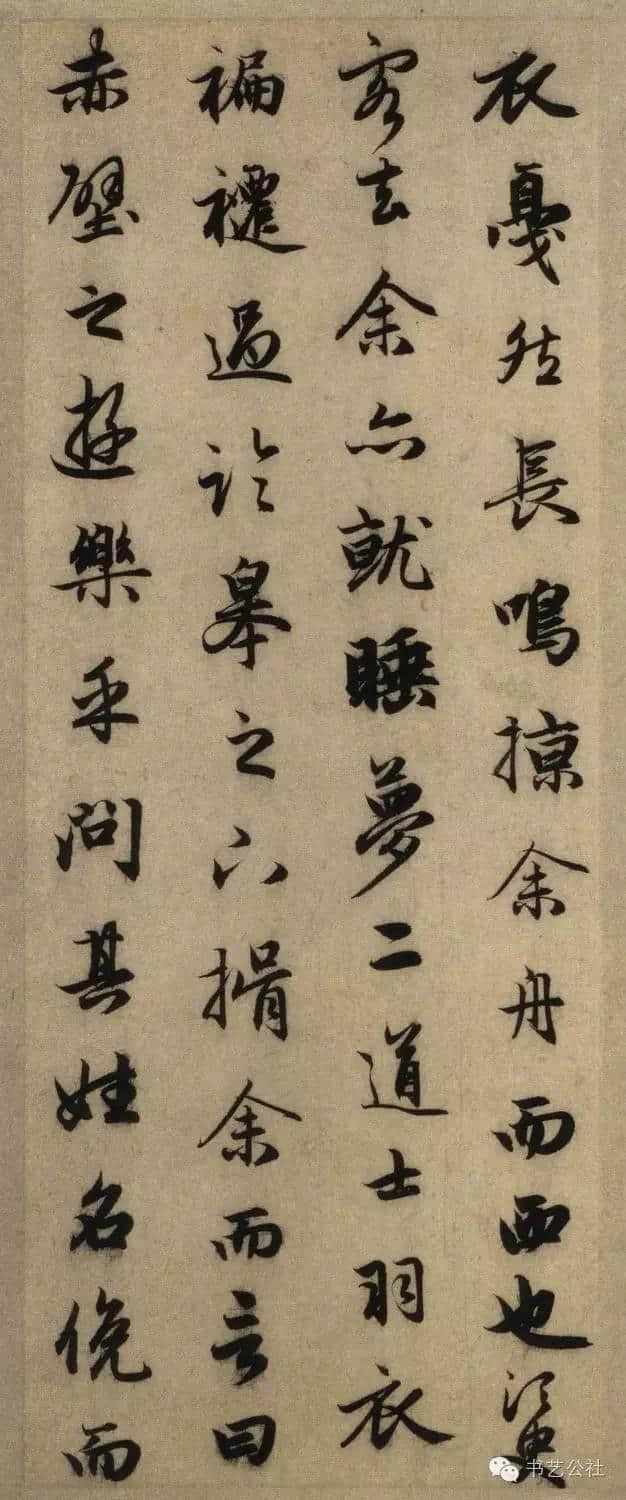 衣戛然長鳴掠余舟而西也須臾
客去余亦就睡夢二道士羽衣
褊褼過臨皋之下揖余而言曰
赤壁之遊樂乎問其姓名俛而
书艺公社